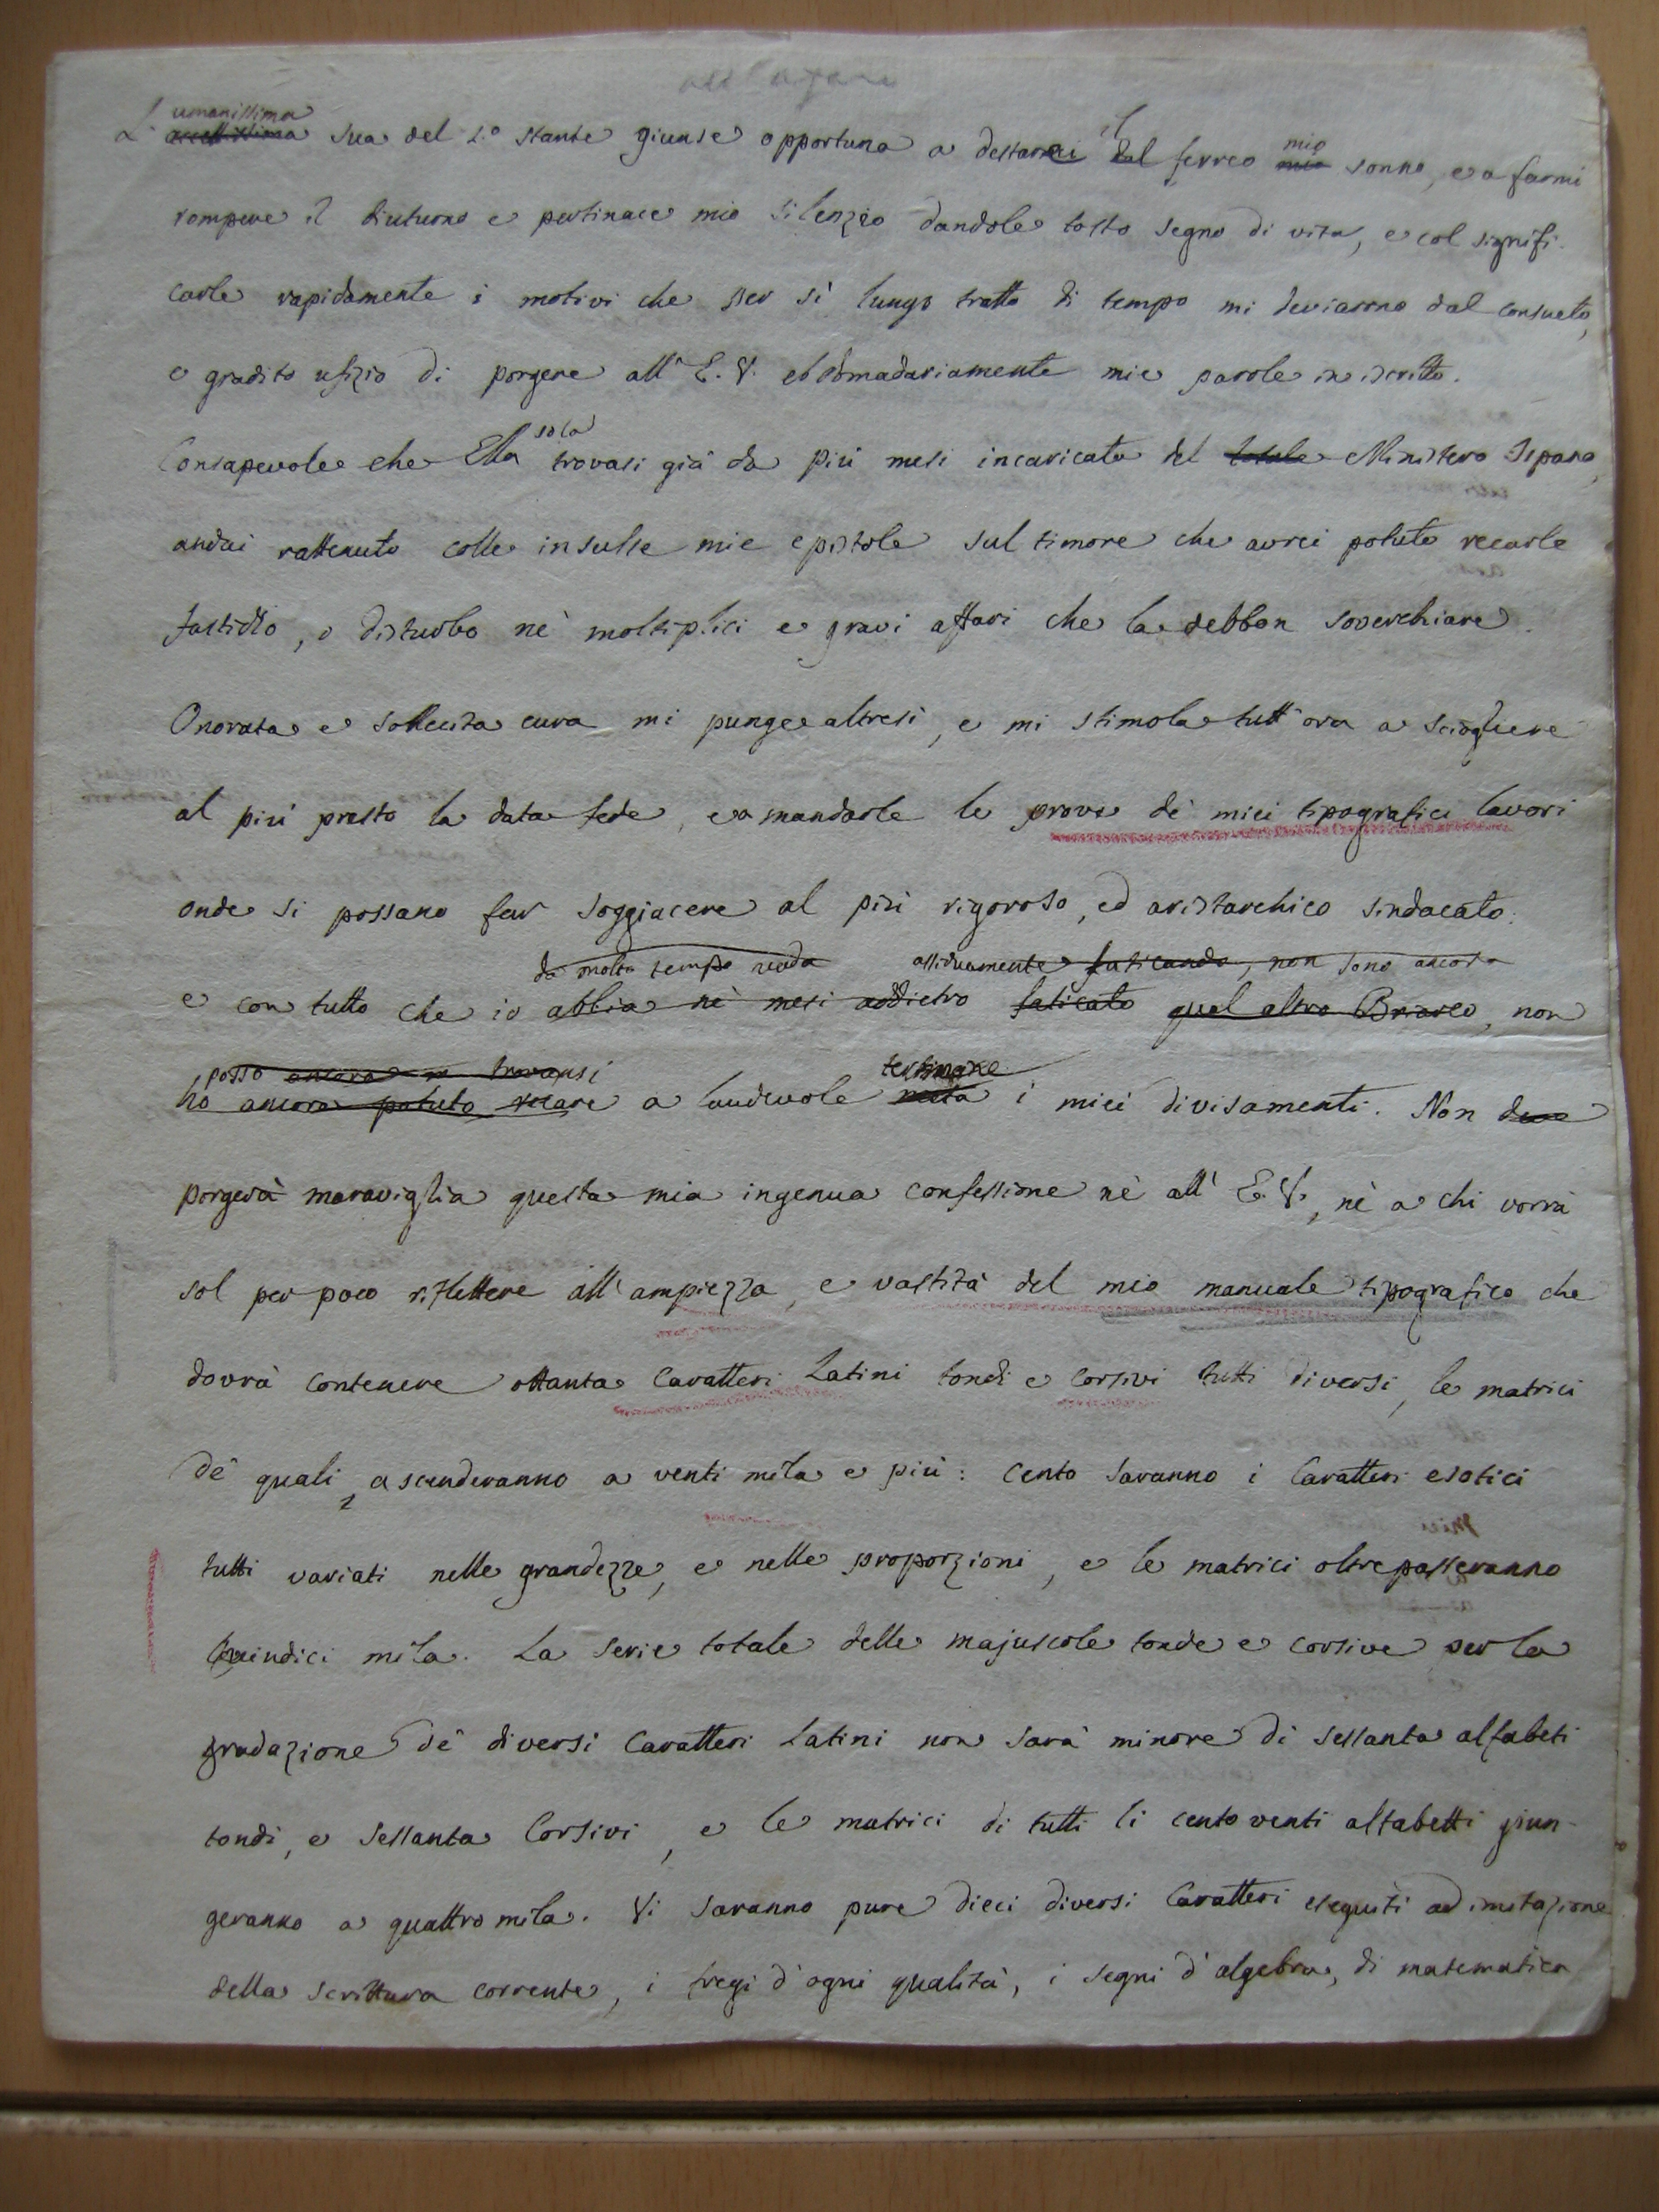 all'Azara
umanissima
L' accettissima sua del 1.º stante giunse opportuna a destarmi dal ferreo mio sonno, e a farmi
mio
rompere il diuturno e pertinace mio silenzio dandole tosto segno di vita, e col signifi-
carle rapidamente i motivi che per sì lungo tratto di tempo mi deviarono dal consueto,
e gradito ufizio di porgere all' E. V. ebdomadariamente mie parole in iscritto.
sola
Consapevole che Ella trovasi già da più mesi incaricata del totale Ministero Ispano,
andai rattenuto colle insulse mie epistole sul timore che avrei potuto recarle
fastidio, o disturbo ne' moltiplici e gravi affari che la debbon soverchiare.
Onorata e sollecita cura mi punge altresì, e mi stimola tutt'ora a sciogliere
al più presto la data fede, e a mandarle le prove de' miei tipografici lavori
onde si possano far soggiacere al più rigoroso, ed aristarchico sindacato.
da molto tempo vada assiduamente faticando, non sono ancora
e con tutto che io abbia ne' mesi addietro faticato qual altro Briareo, non
posso ancora trovarsi terminare
ho ancora potuto recare a laudevole meta i miei divisamenti. Non deve
porgerà maraviglia questa mia ingenua confessione nè all' E. V., nè a chi vorrà
sol per poco riflettere all' ampiezza, e vastità del mio manuale tipografico che
dovrà contenere ottanta Caratteri Latini tondi e corsivi tutti diversi, le matrici
de' quali ascenderanno a venti mila e più: cento saranno i Caratteri esotici
tutti variati nelle grandezze, e nelle proporzioni, e le matrici oltrepasseranno
Quindici mila. La serie totale delle majuscole tonde e corsive per la
gradazione de' diversi Caratteri Latini non sarà minore di sessanta alfabeti
tondi, e sessanta Corsivi, e le matrici di tutti li cento venti alfabetti giun-
geranno a quattro mila. Vi saranno pure dieci diversi Caratteri eseguiti ad imitazione
della scrittura corrente, i fregi d'ogni qualità, i segni d'algebra, di matematica